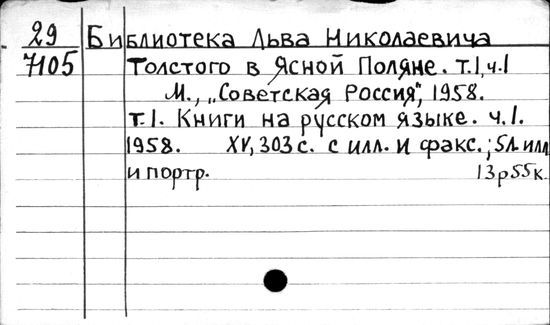 29 Библиотека Льва Николаевича
7105 Толстого в Ясной Поляне. т.1, ч.1
М., „Советская Россия", 1958.
т.1. Книги на русском языке. ч.1.
1958. XV, 303 с. с илл. и факс.; 5 л. илл
и портр. 13р55к.